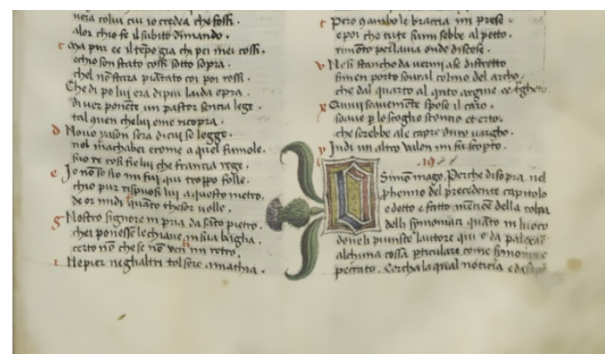 neia colui cui io credea che fossi.
alor chio fe il subito dimando.
c Ma piu e il tēpo gia che pei mei cossi.
echio son stato cossi sotto sopra.
chel nō stara piātato coi poi rossi.
Che di po lui era di piu laida opra.
di ver ponēte un pastor sencia lege.
tal quen che lui e me ricopra.
d Novo iason sera di cui se legge.
nel machabei e come a quel fu mole.
suo re cosi fie lui che francia rege.
e Io nō so sio mi fui qui troppo folle.
chio pur rispuosi lui a questo metro.
de or midi quāto thesor volle.
g Nostro signore in pria da sāto pietro.
chei ponesse le chiave in sua bayha.
certo nō che se nō veti mi retro.
i Ne pier ne ghaltri tolsere a mathia.
c Pero gambo le braccia mi prese.
e poi che tute su mi sebbe al petto.
rimōto per la via onde discese.
v Ne si stancho da vermi a se distretto
si men porto soura l colmo del archo.
che dal quarto al quito argine
x Quivi soavemente spose il caro.
soave p lo scoglio sconcio et erto.
che serebbe ale capre duro vargho.
p Indi un altro valon mi fu scopto.
19
Simō mago. Perche di sopra nel
phenno del precedente capitolo
e detto e fatto mētiōe della colpa
delli symoniaci quāto in luoco
dove li puniste lautore qui e da palezare
alchuna cossa pticulare come symonia e
peccato. Cerchala qual noticia e da